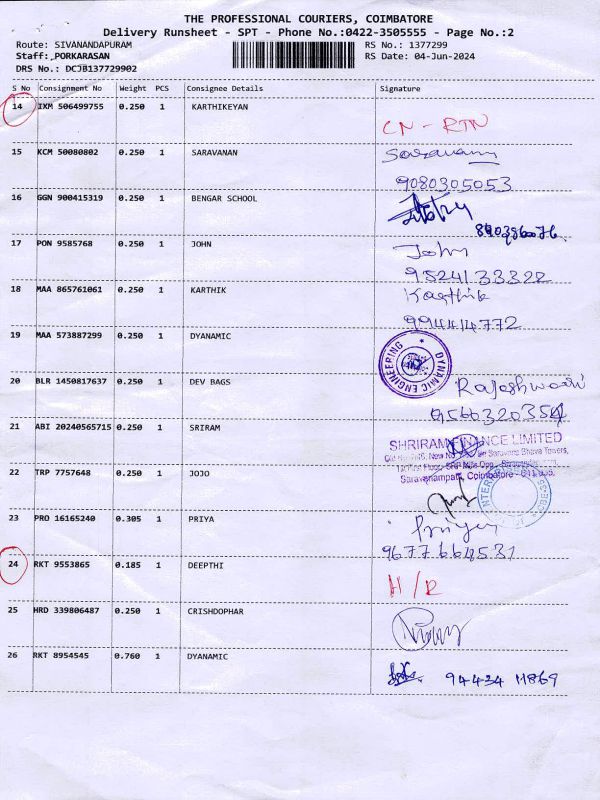 THE PROFESSIONAL COURIERS, COIMBATORE
Delivery Runsheet - SPT - Phone No.:0422-3505555 - Page No.:2
Route: SIVANANDAPURAM RS No.: 1377299
Staff: PORKARASAN RS Date: 04-Jun-2024
DRS No.: DCJB137729902
S No Consignment No Weight PCS Consignee Details Signature
14 IXM 506499755 0.250 1 KARTHIKEYAN
CN - RTN
15 KCM 50080802 0.250 1 SARAVANAN
9080305053
16 GGN 900415319 0.250 1 BENGAR SCHOOL
17 PON 9585768 0.250 1 JOHN John
9524133322
18 MAA 865761061 0.250 1 KARTHIK Karthik
9944414772
19 MAA 573887299 0.250 1 DYANAMIC
DYNAMIC ENGINEERING
20 BLR 1450817637 0.250 1 DEV BAGS Rajeshwari
9566320354
21 ABI 20240565715 0.250 1 SRIRAM
SHRIRAM FINANCE LIMITED
Saravanampatti, Coimbatore
22 TRP 7757648 0.250 1 JOJO
23 PRO 16165240 0.305 1 PRIYA Priya
9677664531
24 RKT 9553865 0.185 1 DEEPTHI
H/R
25 HRD 339806487 0.250 1 CRISHDOPHAR
26 RKT 8954545 0.760 1 DYANAMIC
94434 11869